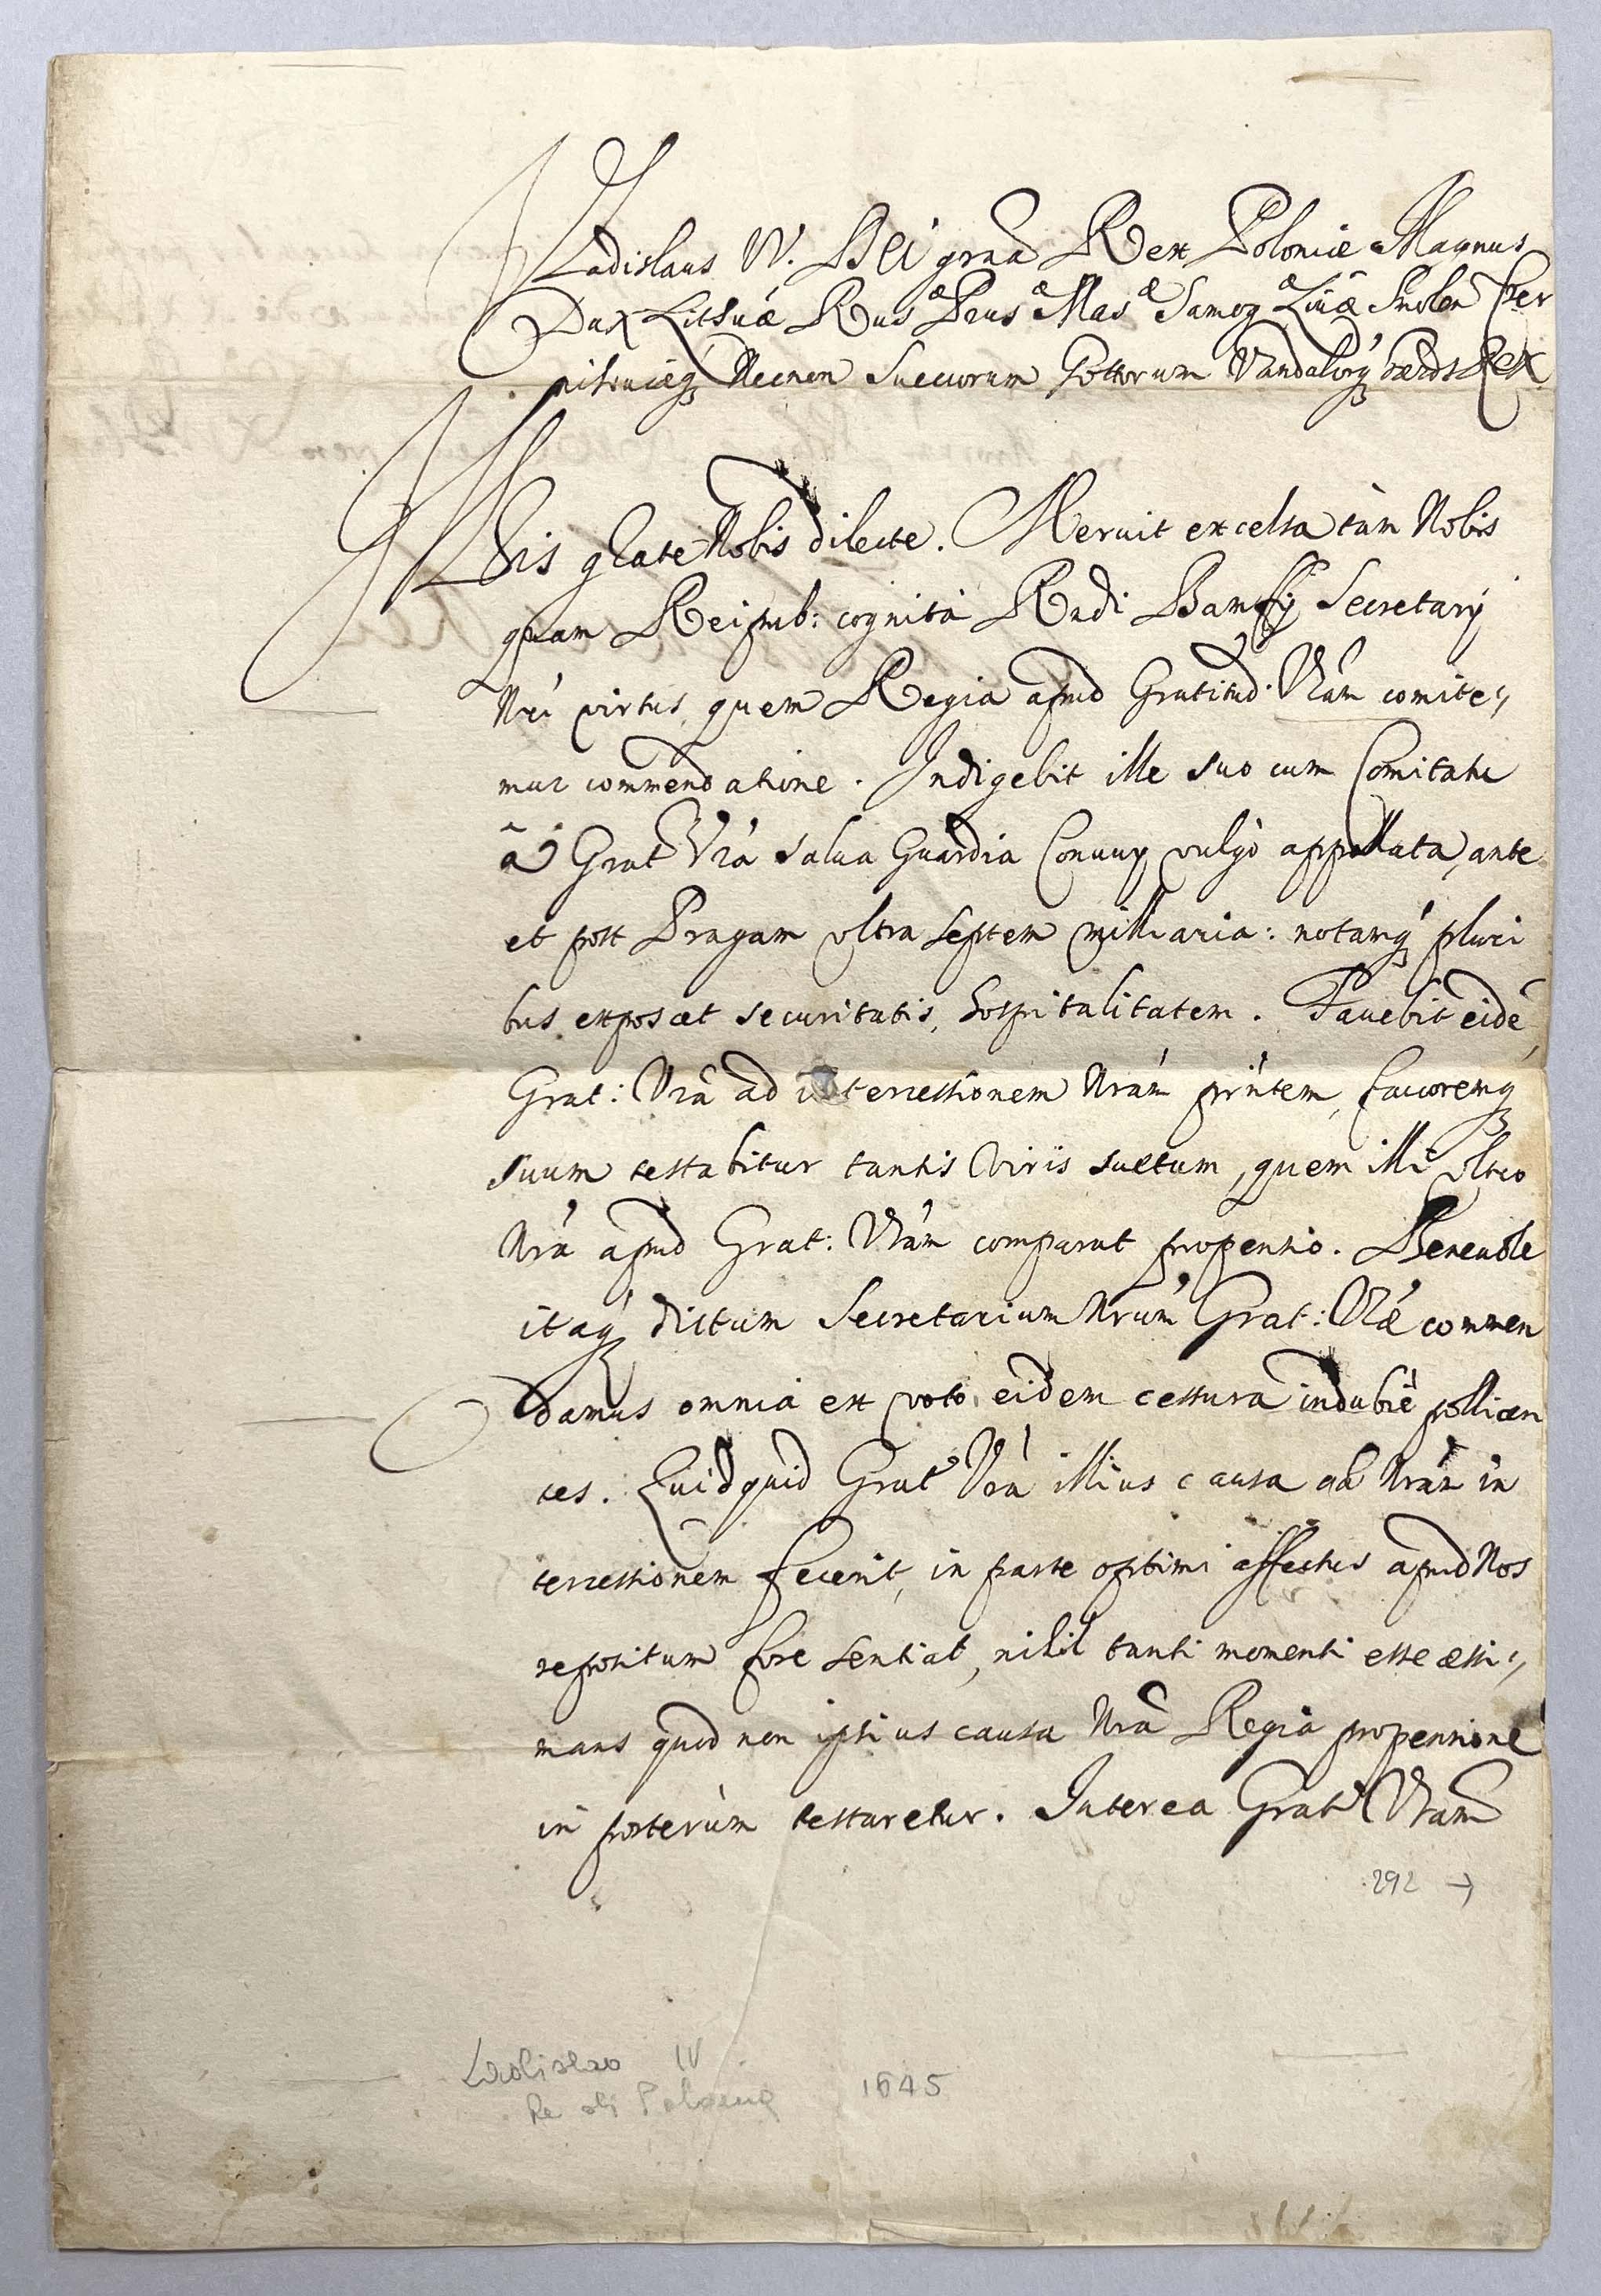 Vladislaus IV. Dei gra͠a Rex Poloniæ Magnus
Dux Lithuæ Rusᵃᵉ Prusᵃᵉ Masᵃᵉ Samogᵃᵉ Liuæ Smolen Czer
nihouiæq́ Necnon Sueccorum Gottorum Vandalorq́ hærds Rex
glate Nobis dilecte. Meruit excelsa tàm Nobis
quam Reipub: cognità Rndi Bamffÿ Secretarÿ
Nrì virtus, quem Regia apud Gratitud: Vrám comite,,
mur commendatione. Indigebit ille suo cum Comitatu
â Grat Vrà salua Guardia Conuoy vulgò appellata, ante
et post Pragam vltra septem milliaria: notamq́ pluri
bus exposcet securitatis, hospitalitatem. Fauebit eidē
Grat: Vrâ ad intercessionem Nrám prn̄tem, fauoremq́
suum testabitur tantis Viris suetum, quem illi vltro
Nrá apud Grat: Vrám comparat propensio. Beneuole
itaq́ dictum Secretarium Nrum Grat: Vræ commen
damus omnia ex voto eidem cessura indubiè pollicen
tes. Quidquid Grat Vrà illius causa ad Nrám in
tercessionem fecerit, in parte optimi affectus apud Nos
repositum fore sentiat, nihil tanti momenti esse æsti,,
mans quod non ipsius causa Nrâ Regia propensione
in posterùm testaretur. Interea Grat Vram
292 →
Ladislao IV
Re di Polonia 1645